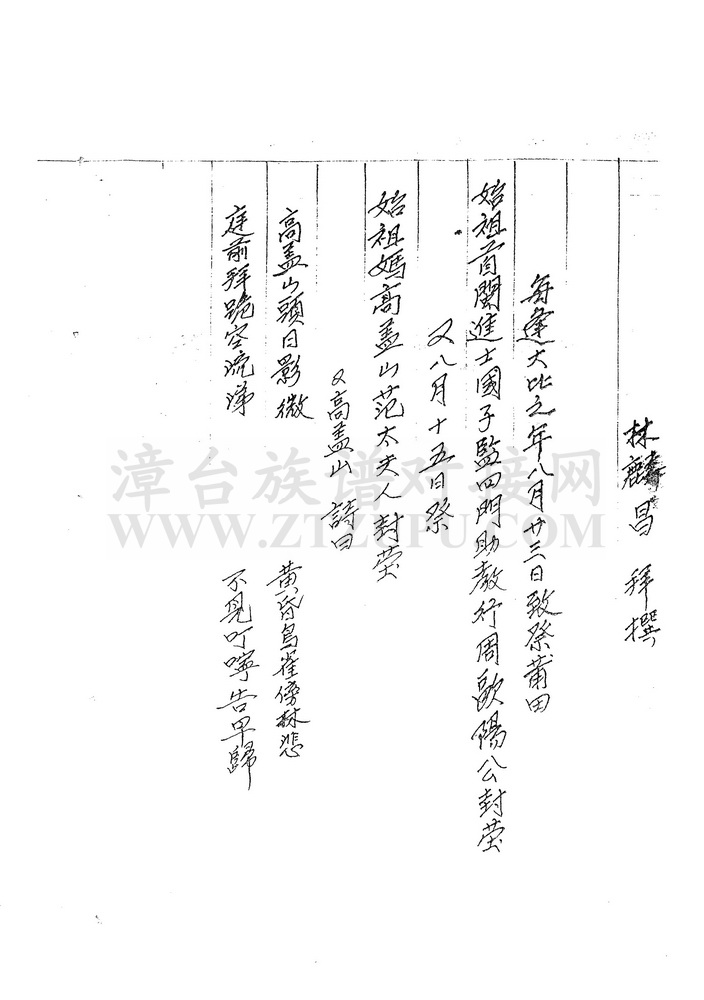 林麟昌 拜撰
每逢大比之年八月廿三日致祭莆田
始祖首闢進士國子監四門助教行周歐陽公封塋
又八月十五日祭
始祖媽高盖山范太夫人封塋
又高盖山 詩曰
高盖山頭日影微 黃昏鳥雀傍林悲
庭前拜跪空流涕 不見叮嚀告早歸
漳台族谱对接网
WWW.ZTZUPU.COM